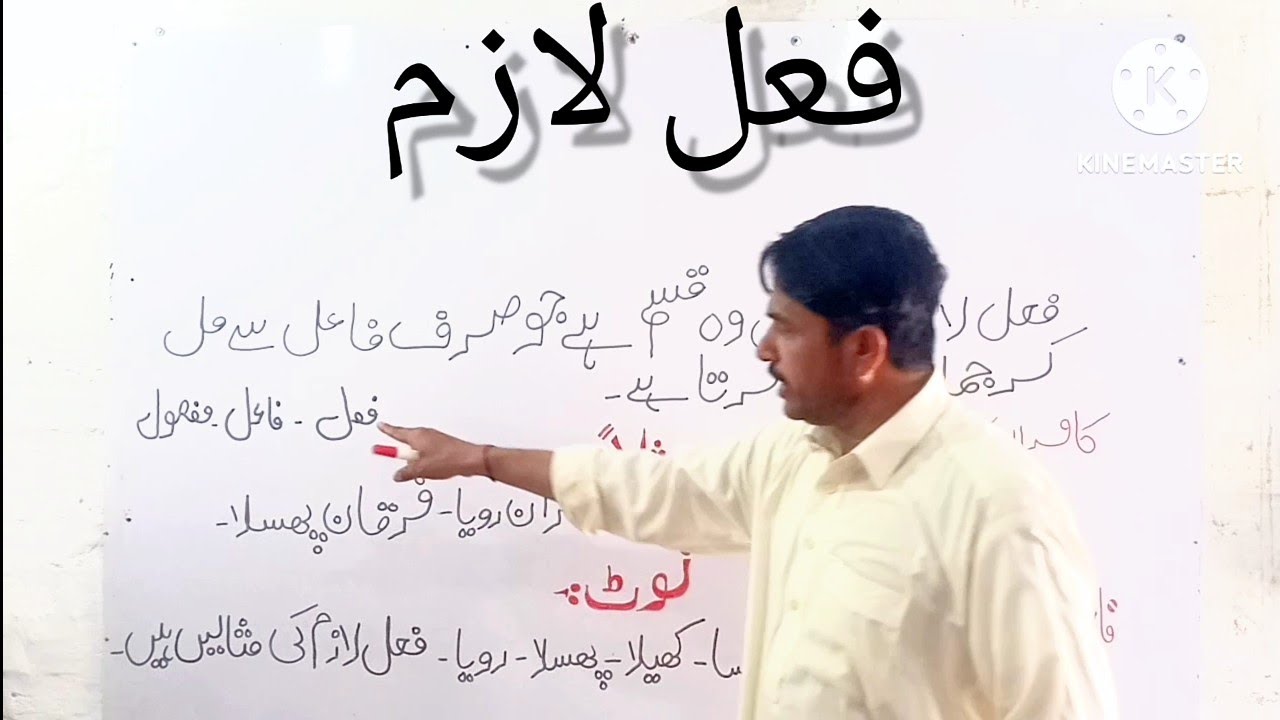 فعل لازم
KINEMASTER
فعل لا وہ قسم ہے جو صرف فاعل سے مل
کر جم کرتا ہے۔
فعل ۔ فاعل ۔ مفعول
رویا ۔ فرقان پھسلا ۔
نوٹ:۔
کھیلا ۔ پھسلا ۔ رویا ۔ فعل لازم کی مثالیں ہیں ۔